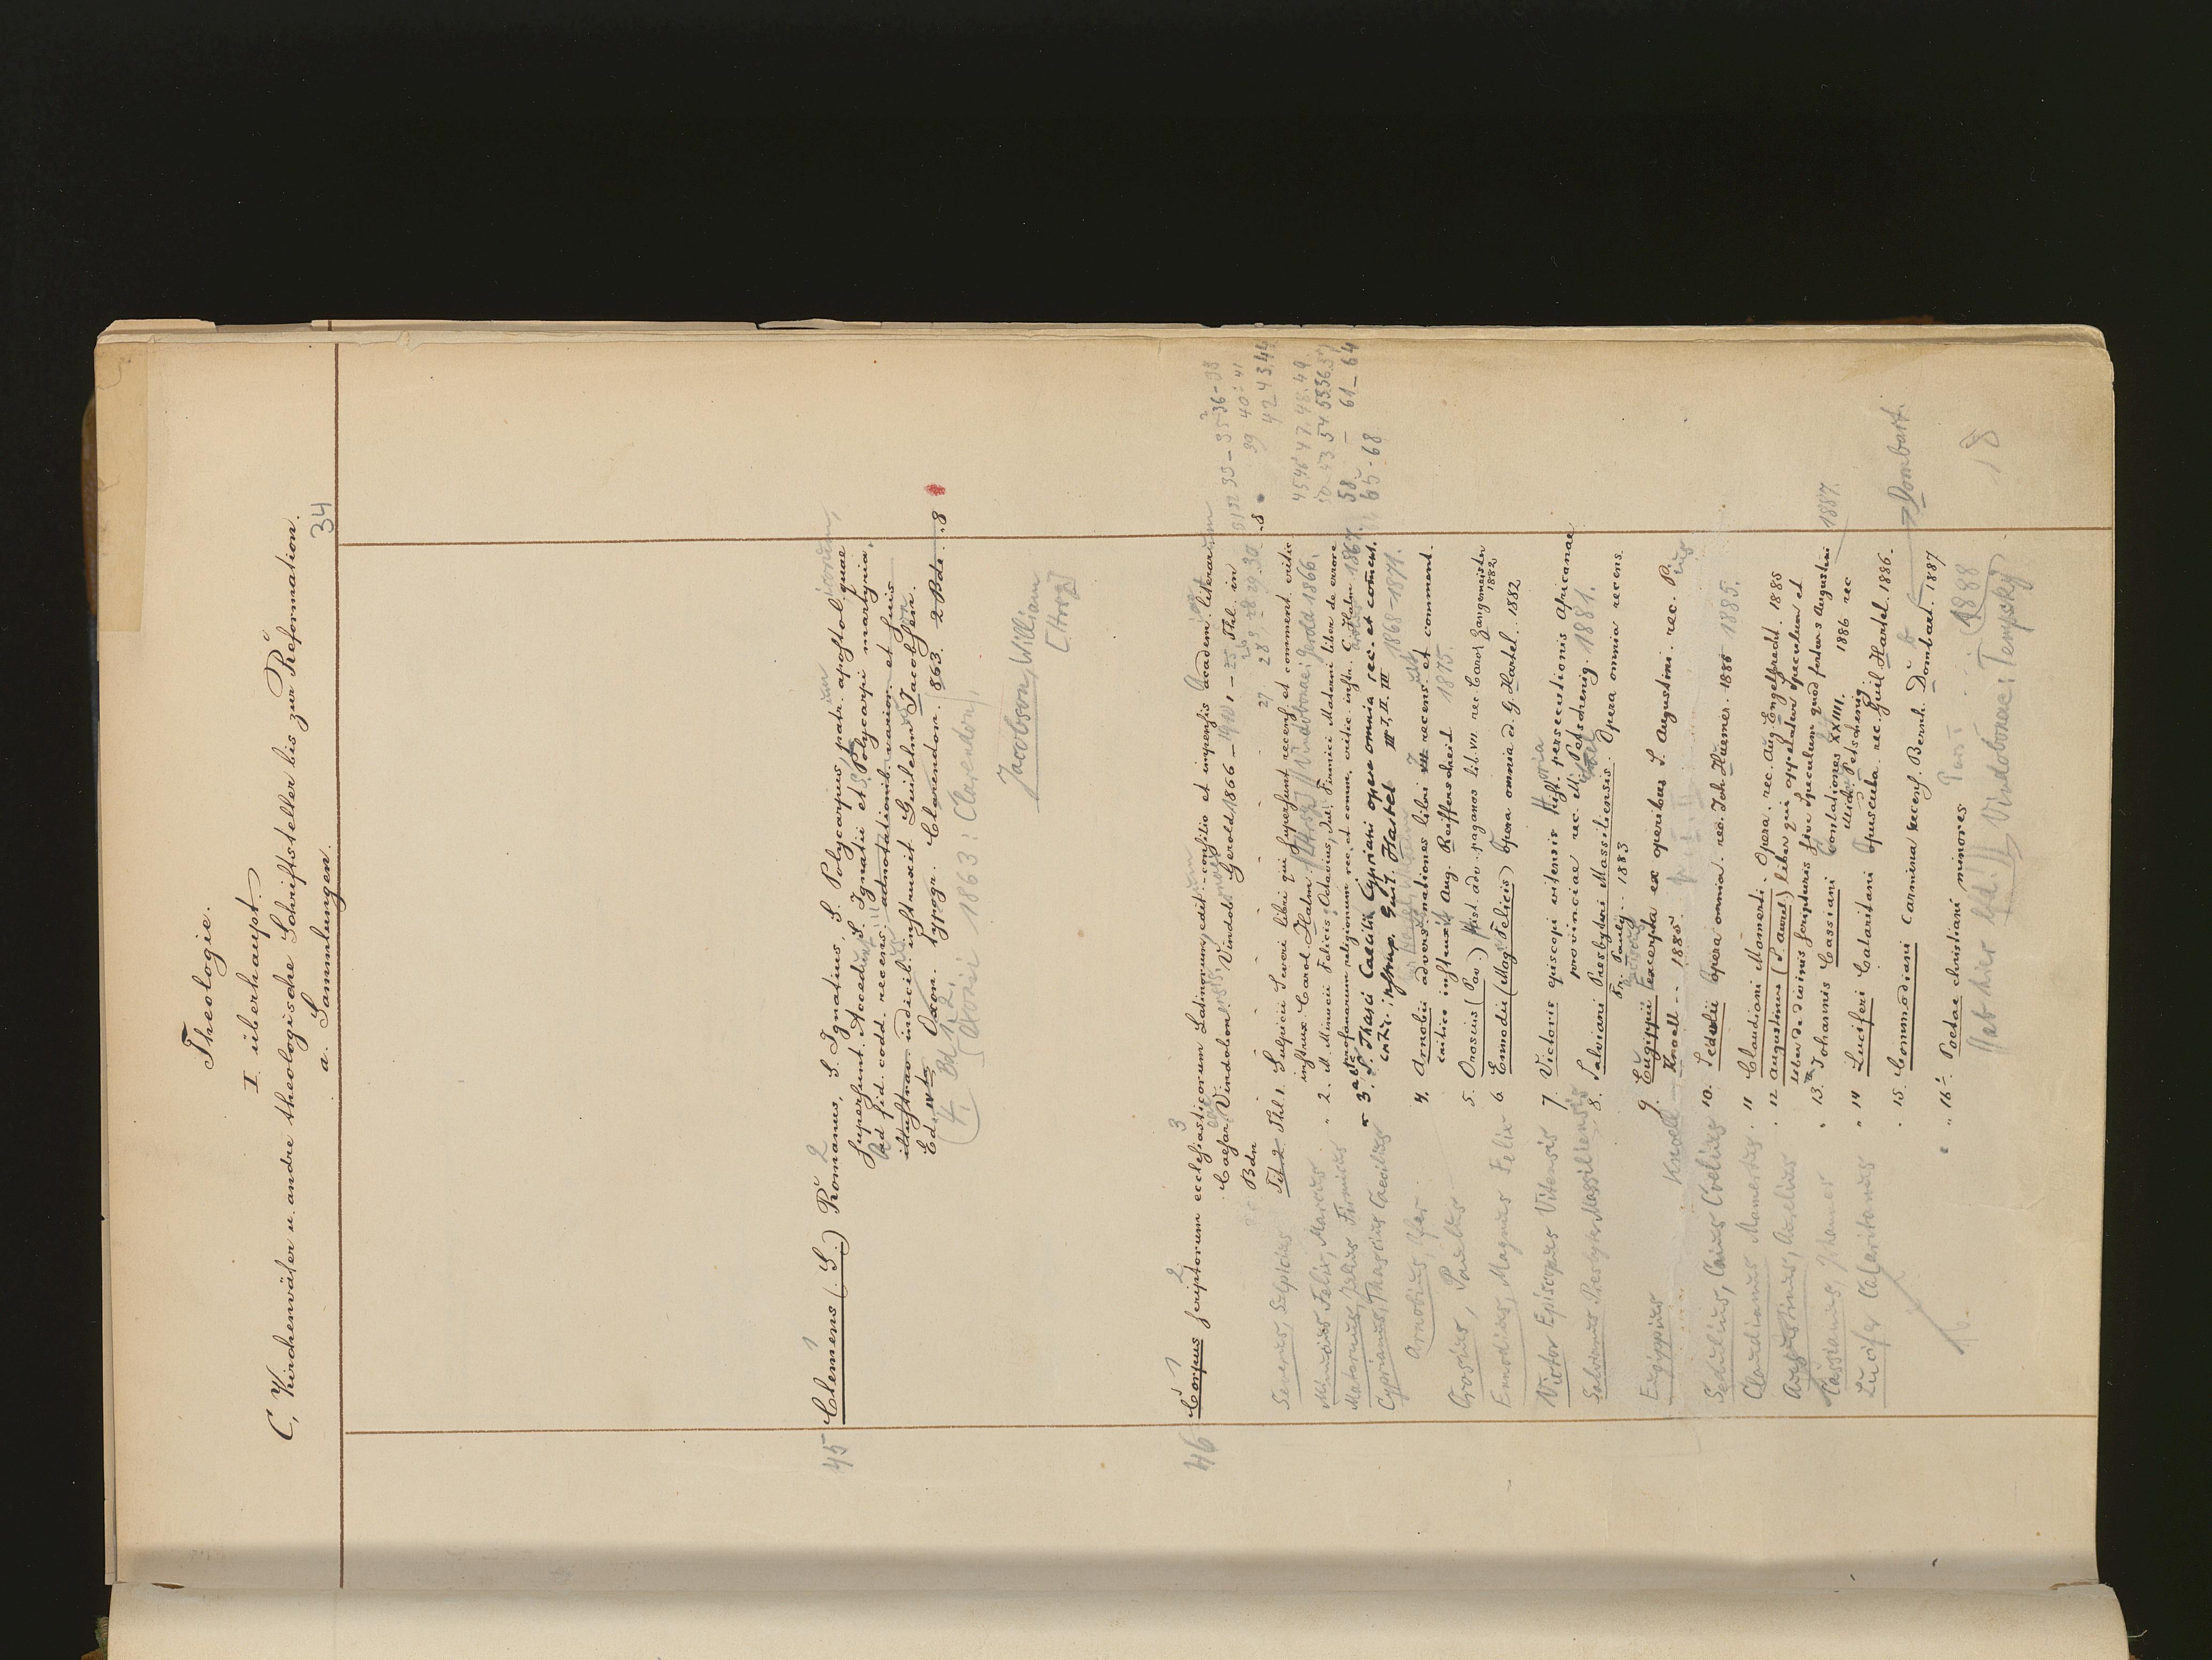 Theologie.
I. überhaupt.
C, Kirchenväter u. andre theologische Schriftsteller bis zur Reformation.
a. Sammlungen.
34
45 Clemens (S.) Romanus, S. Ignatius, S. Polycarpus, patr. apostol. quae
supersunt. Accedunt S. Ignatii et S. Polycarpi martyria,
ad fid. codd. recens. adnotationib. varior. et suis
illustrav. indicib. instruxit Guilelm. Jacobson.
Ed. IVta Oxon. typogr. Clarendon. 863. 2 Bde. 8
(4. Bd 1.2. Oxonii 1863: Clarendon)
Jacobson, William
[Hrsg]
46 Corpus scriptorum ecclesiasticorum Latinorum, edit. consilio et impensis academ. literarum
Caesar. Vindobon. Vindob. Gerold, 1866 –
Bdn 8
Thl 1. Sulpicii Severi libri qui supersunt recens. et comment. critic
instrux. Carol. Halm. Vindobonae: Gerold 1866.
" 2. M. Minucii Felicis Octavius, Jul. Firmici Materni liber de errore
profanarum religionum rec. et comm. critic. instr. C. Halm 1867.
" 3. S. Thasci Caecilii Cypriani opera omnia rec. et coment.
critic. instrux. Guil. Hartel III I, II. III 1868-1871.
4. Arnobii adversus nationes libri VII recens. et comment.
critico instruxit Aug. Reifferscheid 1875.
5. Orosius (Pav.) Hist. adv. paganos lib. VII rec Carol Zangemeister
1882
6 Ennodii (Mag Felicis) Opera omnia ed. G. Hartel. 1882
7. Victoris episcopi vitensis Historia persecutionis Africanae
provinciae rec. M. Petschenig. 1881.
8. Salviani Presbyteri Massiliensis Opera omnia recens.
Fr. Pauly.. 1883
9. Eugippii Excerpta ex operibus S. Augustini. rec. P.
Knoell -- 1885.
10. Sedulii Opera omnia. rec. Joh. Huemer. 1885 1885.
11 Claudiani Mamerti. Opera. rec. Aug Engelbrecht. 1885
12 Augustinus (S. Aurel.) liber qui appellatur Speculum et
Liber de divinis scripturis sive Speculum quod fertur S Augustini 1887.
13. Johannis Cassiani conlationes XXIIII. 1886 rec
Mich. Petschenig.
14 Luciferi Calaritani Opuscula. rec. Guil Hartel. 1886.
15. Commodiani Carmina recens. Bernh. Dombart. 1887
Dombart.
" 16. Poetae christiani minores Pars I 1888
Vindobonae: Tempsky
18
Severus, Sulpicius
Minucius Felix, Marcus
Maternus, Julius Firmicus
Cyprianus, Thascius Caecilius
Arnobius, Afer
Orosius, Paulus
Ennodius, Magnus Felix
Victor Episcopus Vitensis
Salvianus Presbyter Massiliensis
Eugippius
Knoell
Sedulius, Caius Coelius
Claudianus Mamertus
Augustinus, Aurelius
Cassianus, Johannes
Lucifer Calaritanus